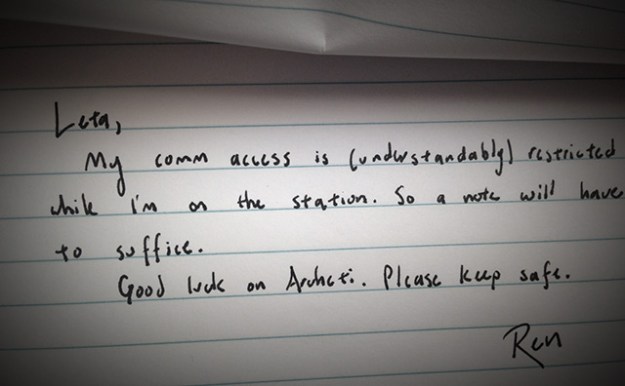 Leta,
My comm access is (understandably) restricted
while I'm on the station. So a note will have
to suffice.
Good luck on Archeti. Please keep safe.
Ren